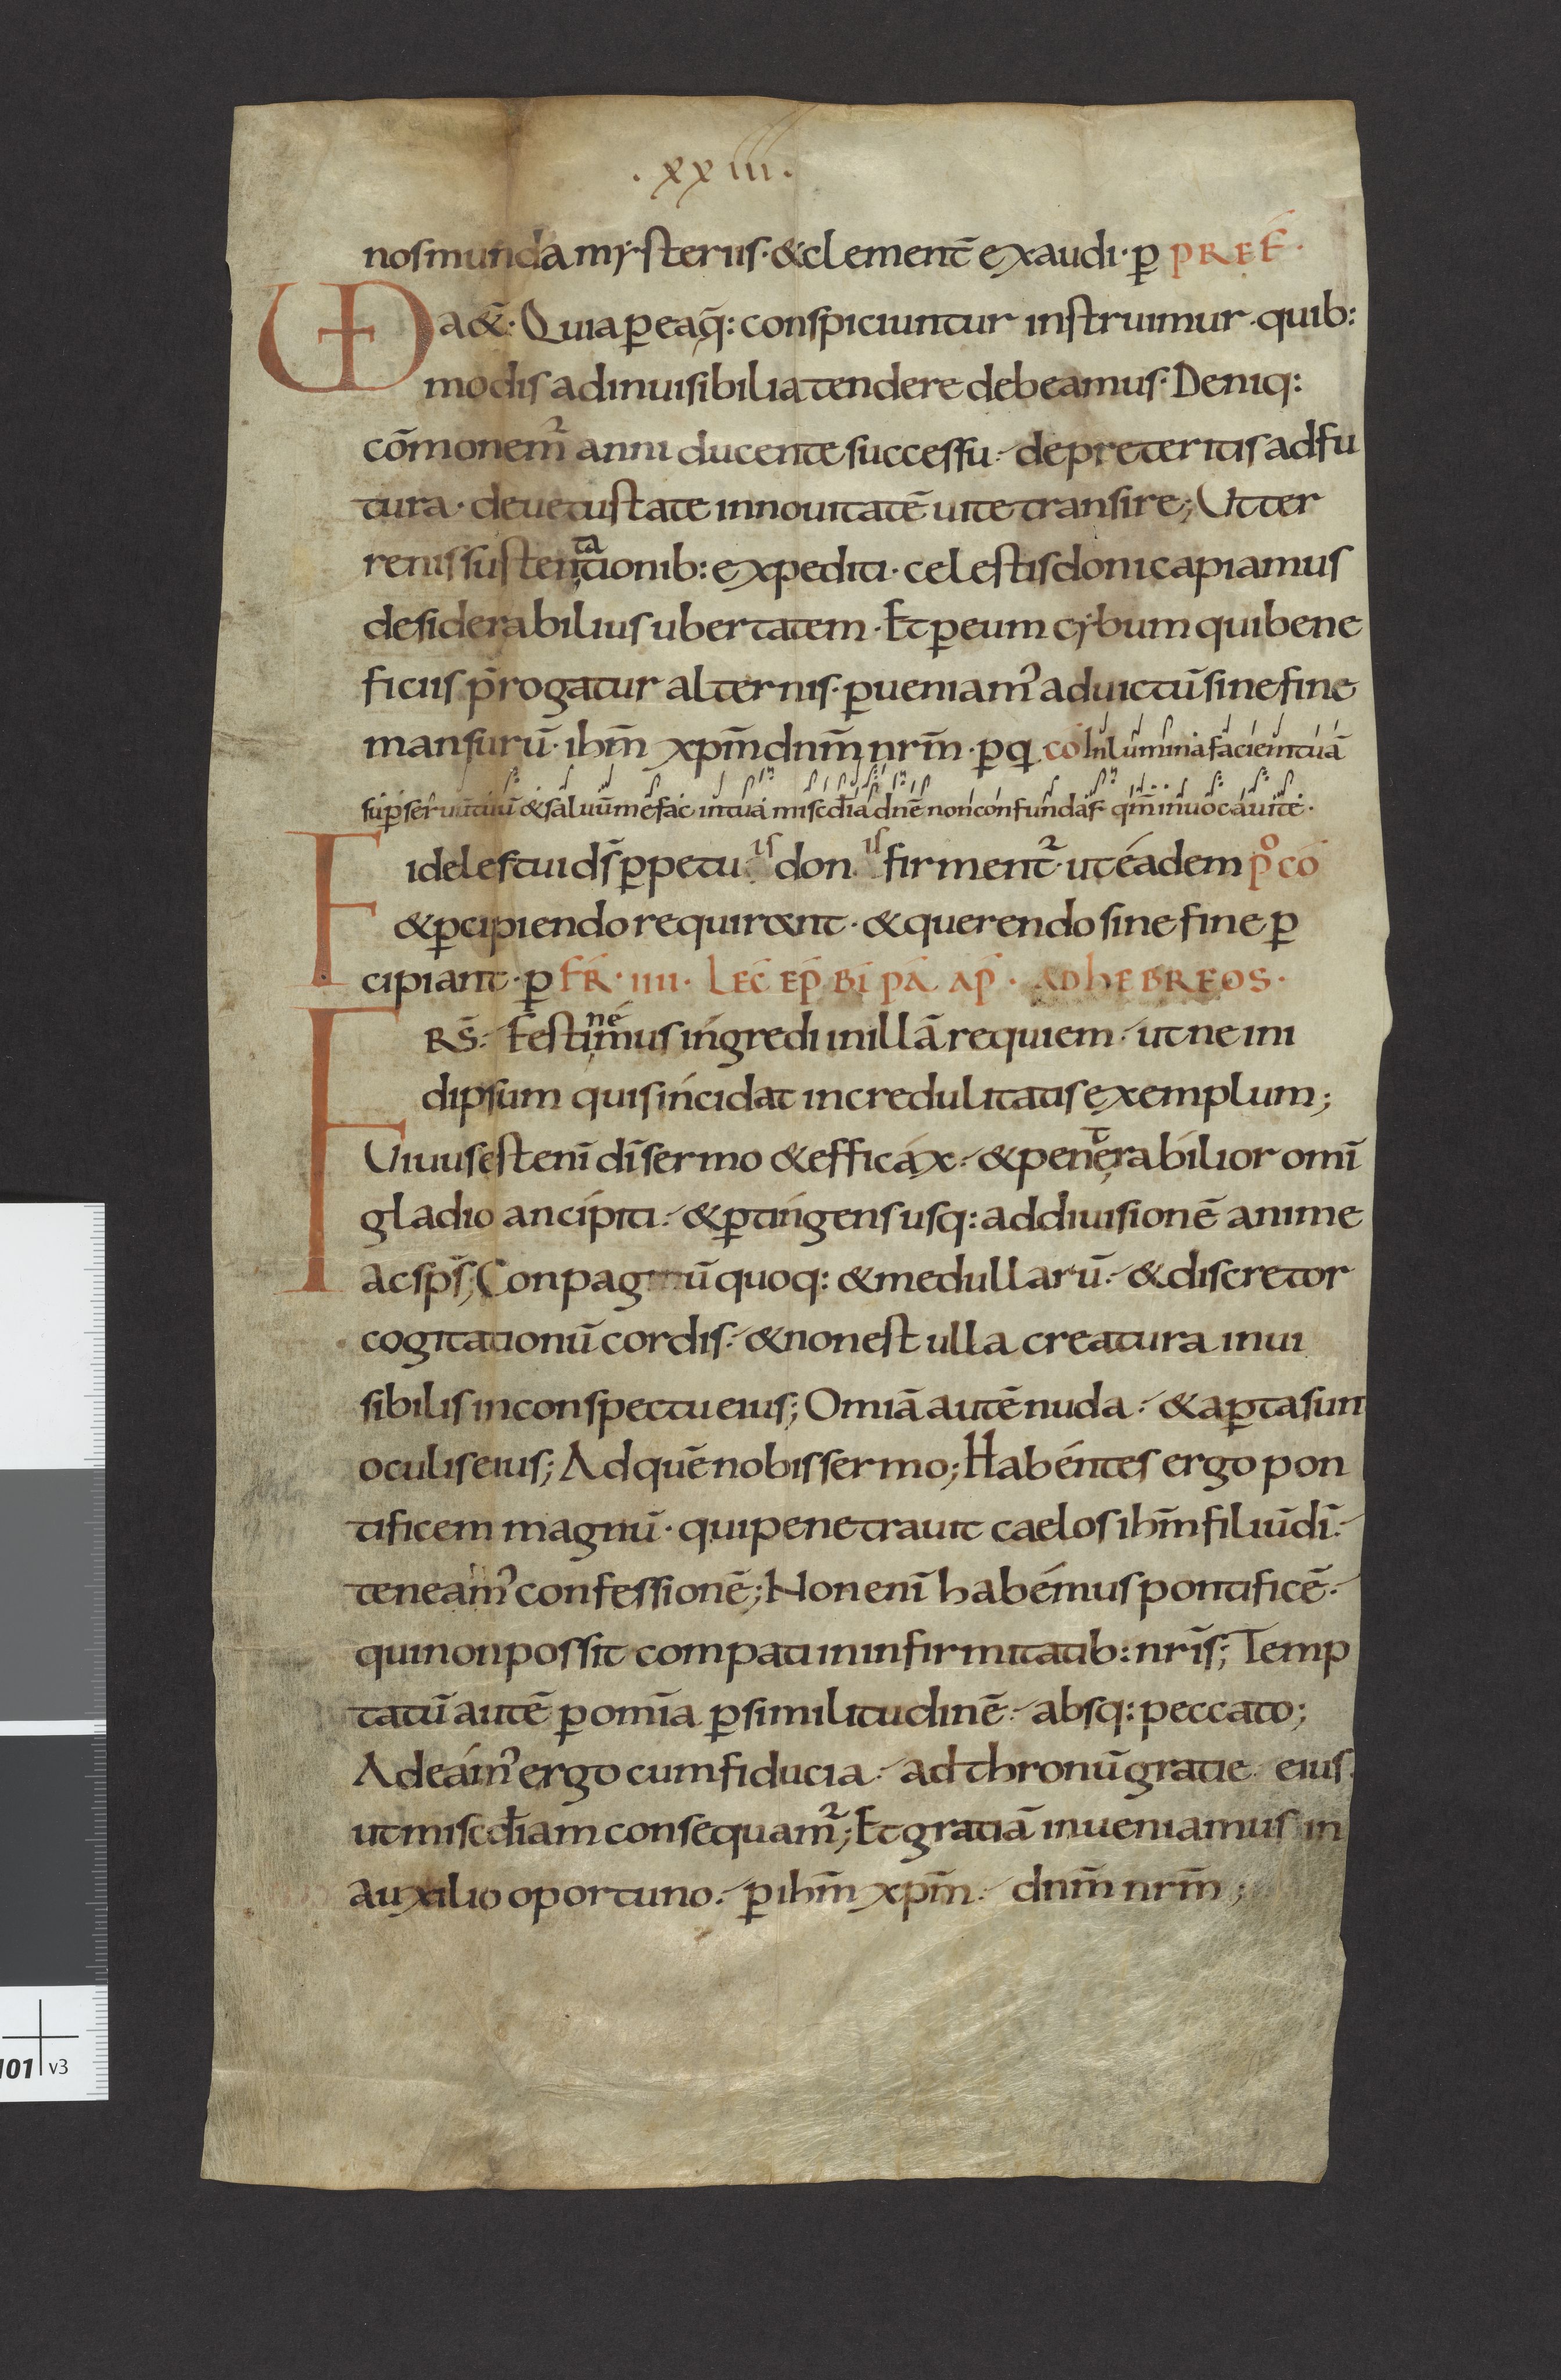 .xxiii.
nos munda mysteriis · & clement̄ exaudi · ꝑ PREF̄ ·
VD a&̄ · Quia ꝑ ea q̄: conspiciuntur instruimur · quib:
modis ad inuisibilia tendere debeamus · Deniq:
cōmonem̄ anni ducente successu · de preteritis ad fu
tura · de uetustate in nouitatē uite transire; Ut ter
renis sustentationib: expediti · celestis doni capiamus
desiderabilius ubertatem · Et ꝑ eum cybum qui bene
ficiis p̄rogatur alternis · ꝑueniam᾽ ad uictū sine fine
mansurū · ihm̄ xpm̄ dnm̄ nrm̄ · ꝑ q CŌ Inlumina faciem tuā
suꝑ seruū tuū & saluū me fac in tua miscd̄ia dnē non confundar qm̄ inuocaui te ·
Fideles tui ds̄ ꝑpetuis donis firment᷑ · ut eadem P̊ CŌ
& ꝑcipiendo requirant · & querendo sine fine ꝑ
cipiant · ꝑ FR̄ · IIII · LEC̄ EP̄ BI PA AP̄ · AD HEBREOS ·
FRS̄ · Festinemus ingredi in illā requiem · ut ne in i
dipsum quis incidat incredulitatis exemplum;
Viuus est enī dī sermo & efficax · & penetrabilior omī
gladio ancipiti · & ꝑtingens usq: ad diuisionē anime
ac sps̄; Conpagmū quoq: & medullarū · & discretor
cogitationū cordis · & non est ulla creatura inui
sibilis in conspectu eius; Omiā autē nuda · & aꝑta sunt
oculis eius; Ad quē nobis sermo; Habentes ergo pon
tificem magnū · qui penetrauit caelos ihm̄ filiū dī ·
teneam᾽ confessionē; Non enī habemus pontificē ·
qui non possit compati in infirmitatib: nrīs; Temp
tatū autē ꝑ omīa ꝑ similitudinē · absq: peccato;
Adeam᾽ ergo cum fiducia · ad thronū gratie eius ·
ut miscd̄iam consequam᷑; Et gratiā inueniamus in
auxilio oportuno · ꝑ ihm̄ xpm̄ · dnm̄ nrm̄;